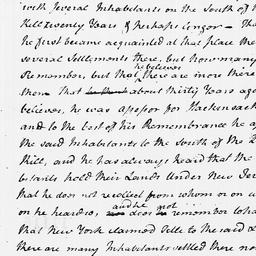 with several Inhabitants on the South of
Kill twenty Years & perhaps longer — Tha
he first became acquainted at that place the
several Settlements there, but how many
Remember, but that he believes there are more there
then That about thirty Years ago
believes, he was assessor for Hackensack
and to the best of his Remembrance he a
the said Inhabitants to the South of the
Kill, and he has always heard that the
bitants held their Lands under New Jer
that he does not recollect from whom or on w
on he heard so, and he does not remember to ha
that New York claimed Title to the said
there are many Inhabitants settled there no